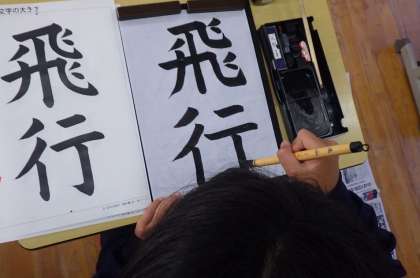 文字の大き
飛行
飛行